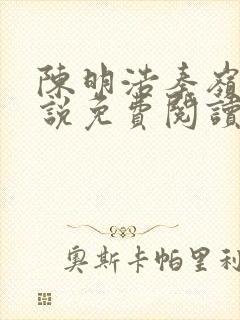 陳明浩秦嶺
說免費閱讀
奧斯卡帕里利